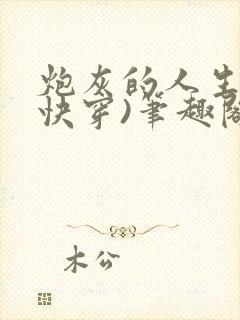 炮灰的人生
快穿)筆趣閣
木公